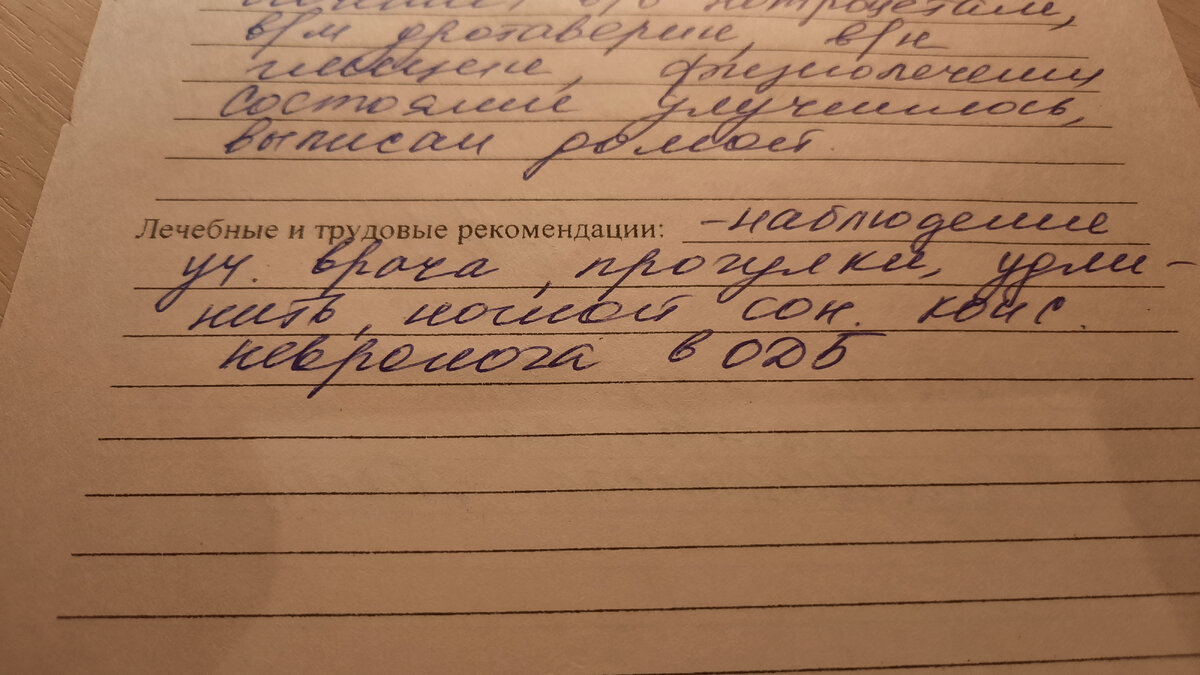 в/в нотрацетам,
в/м дротаверин, в/н
глицин, физиолечения
состояние улучшилось,
выписан домой.
Лечебные и трудовые рекомендации: – наблюдение
уч. врача, прогулки, удли–
нить, ночной сон. конс.
невролога в ОДБ